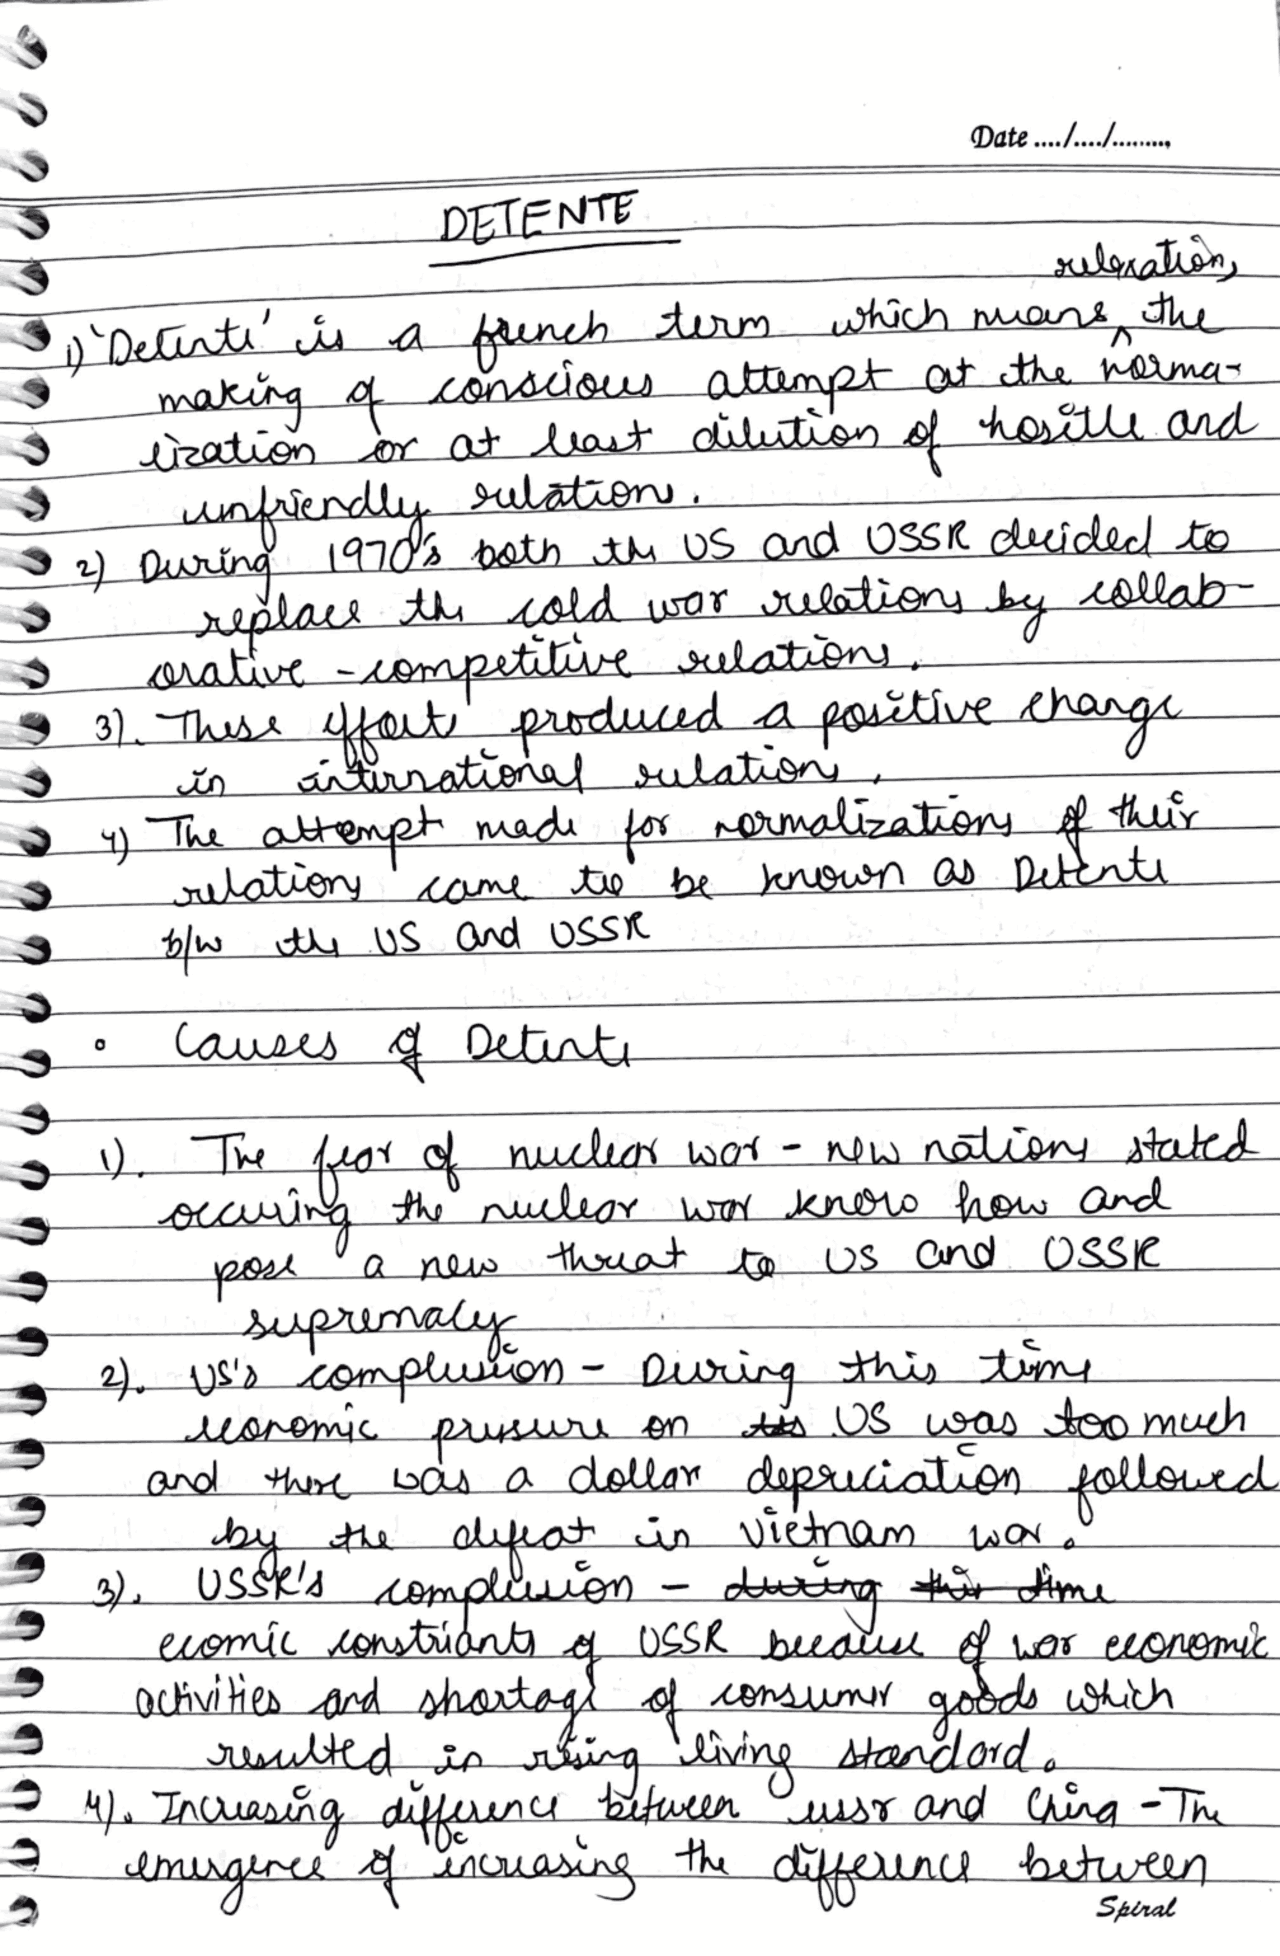 Date ..../..../.........
DETENTE
relaxation,
1) 'Detente' is a french term which means ^ the
making of conscious attempt at the norma-
lization or at least dilution of hositle and
unfriendly relations.
2) During 1970's both the US and USSR decided to
replace the cold war relations by collab-
orative - competitive relations.
3). These efforts produced a positive change
in international relations.
4) The attempt made for normalizations of their
relations came to be known as Detente
b/w the US and USSR
• Causes of Detente
1). The fear of nuclear war - new nations stated
occuring the nuclear war know how and
pose a new threat to US and USSR
supremacy
2). US's complusion - During this time
economic pressure on US was too much
and there was a dollar depreciation followed
by the defeat in Vietnam war.
3). USSR's complusion - during this time
ecomic constriants of USSR because of war economic
activities and shortage of consumer goods which
resulted in rising living standard.
4). Increasing difference between ussr and China - The
emergence of increasing the difference between
Spiral